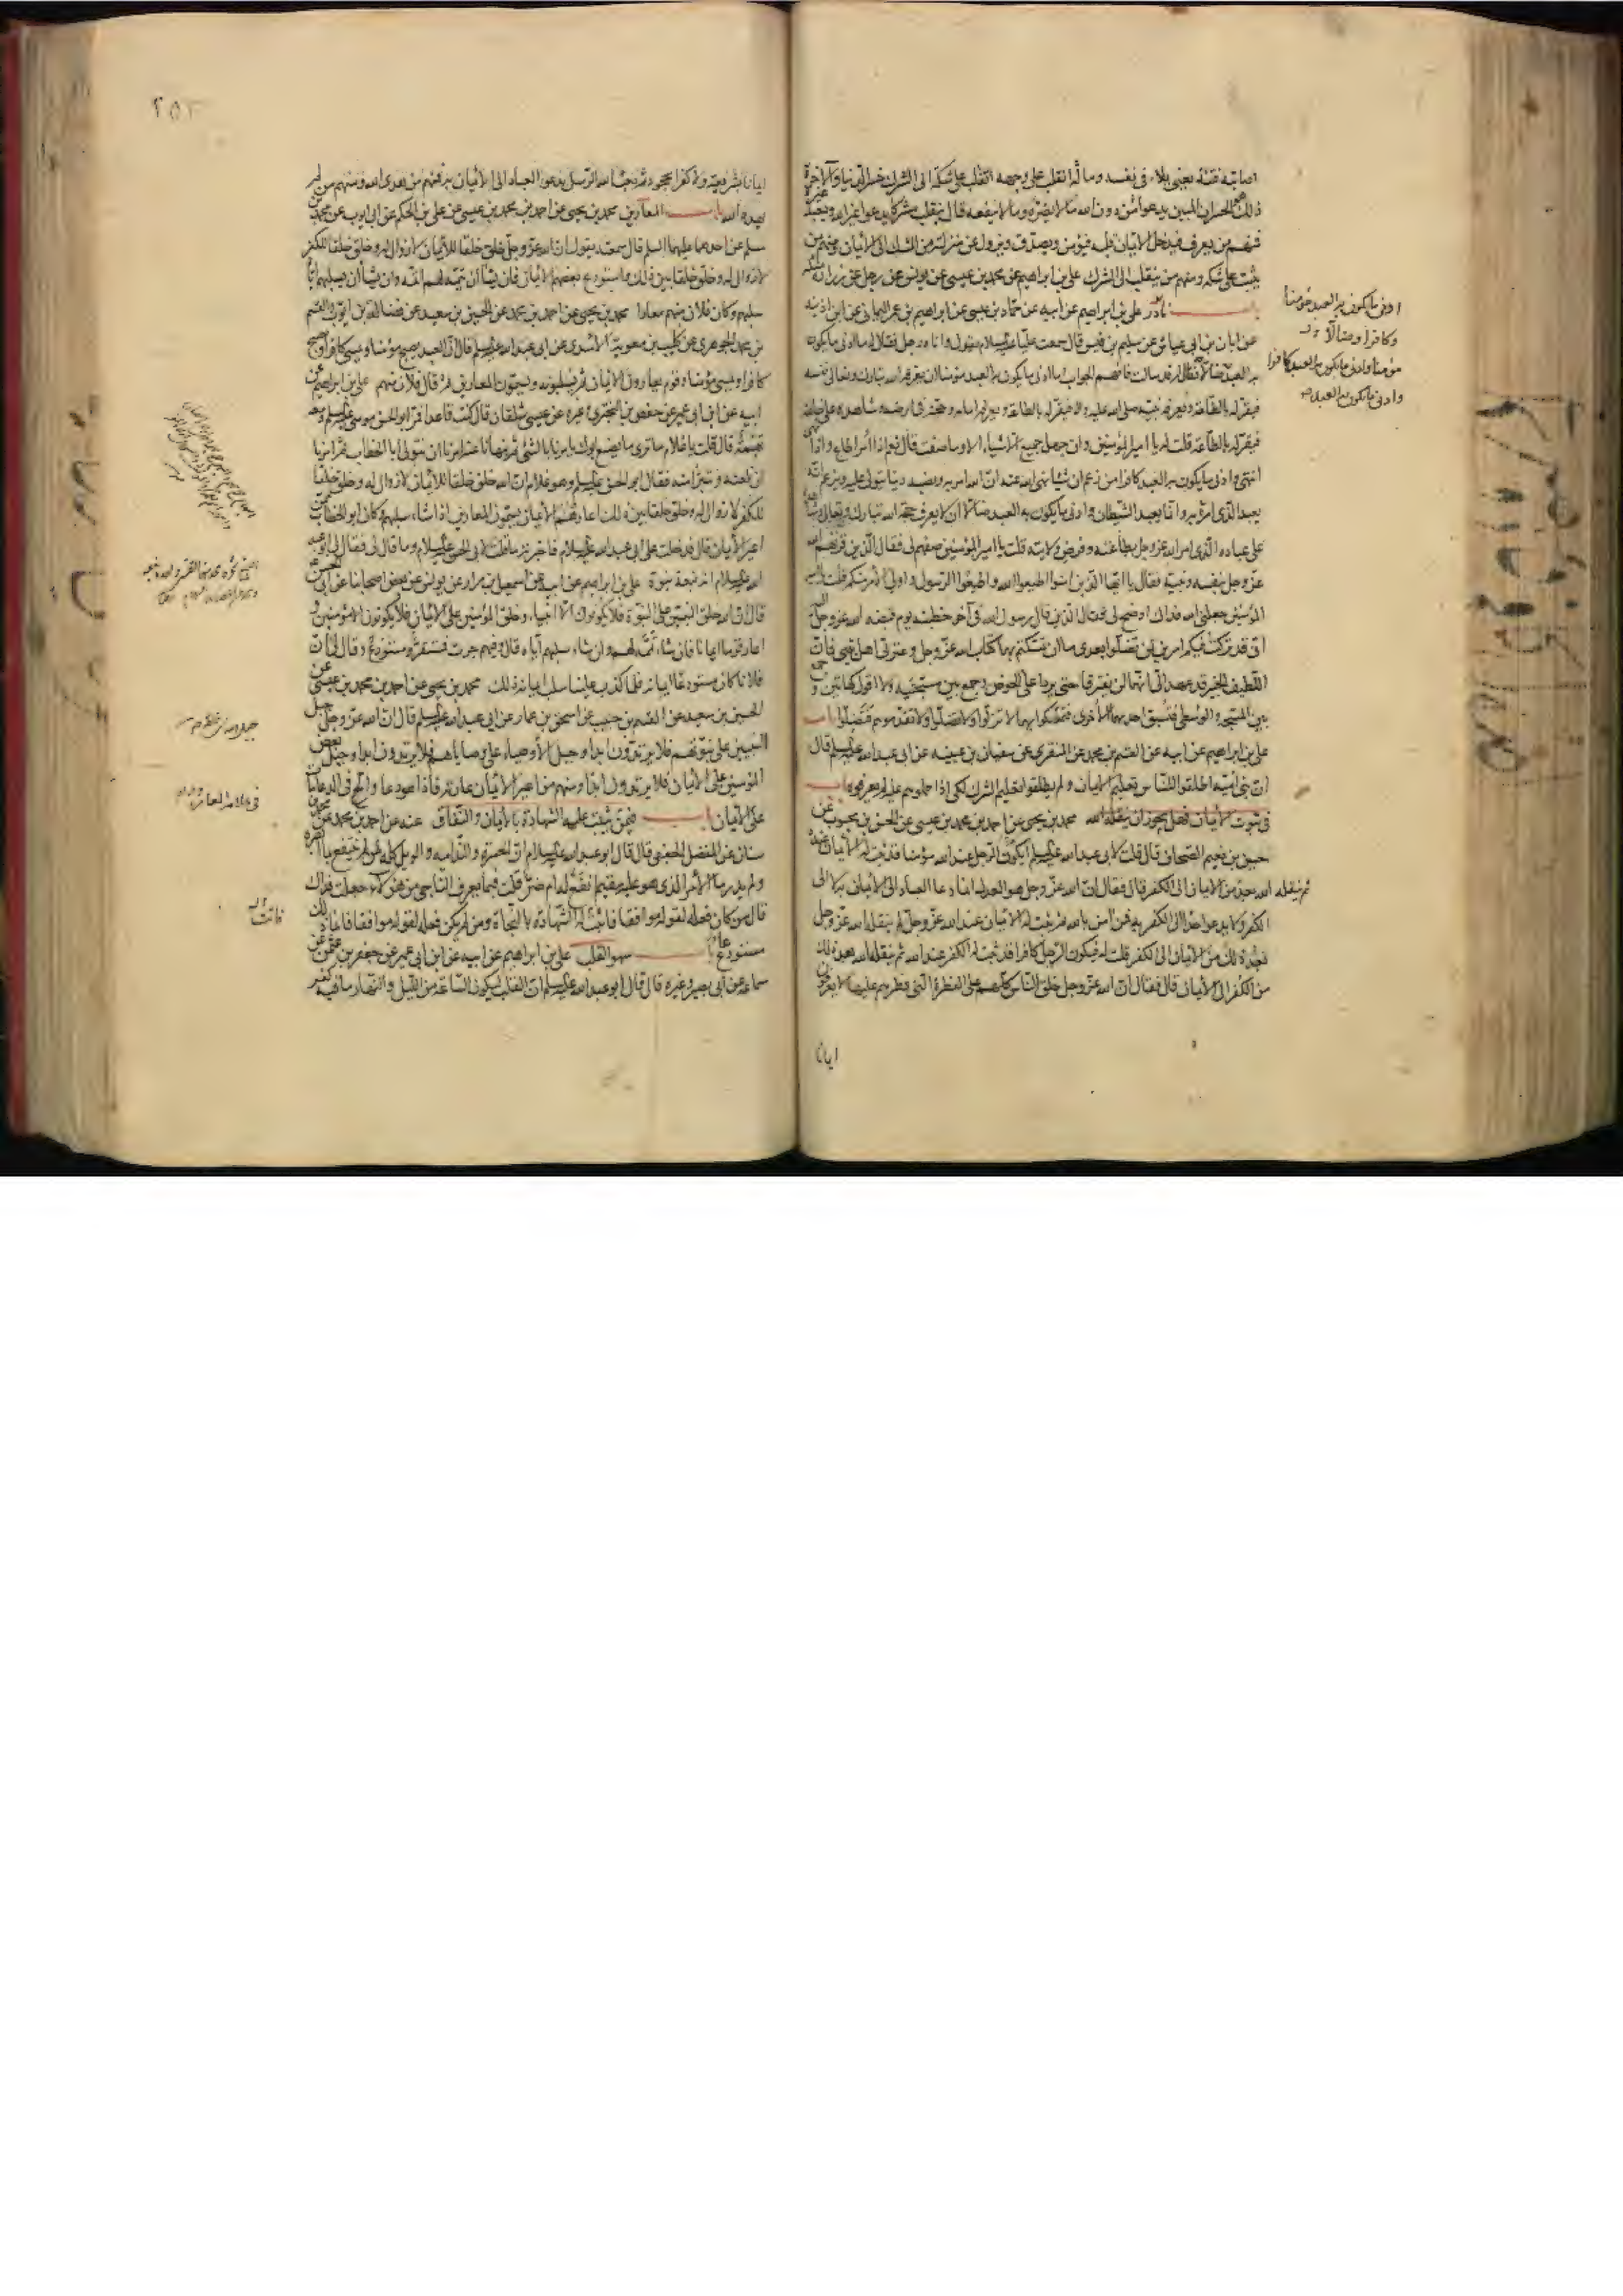 اصابته فتنة يعني بلاء في نفسه وماله انقلب على وجهه انقلب على شكه الى الشرك خسر الدنيا والآخرة
ذلك هو الخسران المبين يدعو من دون الله ما لا يضره وما لا ينفعه قال ينقلب مشركا يدعو غير الله ويعبد غيره
فمنهم من يعرف فيدخل الايمان قلبه فيؤمن ويصدق ويزول عن منزلته من الشك الى الايمان ومنهم من
يثبت على شكه ومنهم من ينقلب الى الشرك علي بن ابراهيم عن محمد بن عيسى عن يونس عن رجل عن زرارة مثله
باب نادر علي بن ابراهيم عن ابيه عن حماد بن عيسى عن ابراهيم بن عمر اليماني عن ابن اذينه
عن ابان بن ابي عياش عن سليم بن قيس قال سمعت عليا عليه السلام يقول واتاه رجل فقال له ما ادنى ما يكون
به العبد ضالا فقال له قد سالت فافهم الجواب اما ادنى ما يكون به العبد مؤمنا ان يعرفه الله تبارك وتعالى نفسه
فيقر له بالطاعة ويعرفه نبيه صلى الله عليه واله فيقر له بالطاعة ويعرفه امامه وحجته في ارضه وشاهده على خلقه
فيقر له بالطاعة قلت له يا امير المؤمنين وان جهل جميع الاشياء الا ما وصفت قال نعم اذا امر اطاع واذا نهي
انتهى وادنى ما يكون به العبد كافرا من زعم ان شيئا نهى الله عنه ان الله امر به ونصبه دينا يتولى عليه ويزعم انه
يعبد الذي امره به وانما يعبد الشيطان وادنى ما يكون به العبد ضالا ان لا يعرف حجة الله تبارك وتعالى وشاهده
على عباده الذي امر الله عز وجل بطاعته وفرض ولايته قلت يا امير المؤمنين صفهم لي فقال الذين قرنهم الله
عز وجل بنفسه ونبيه فقال يا ايها الذين امنوا اطيعوا الله واطيعوا الرسول واولي الامر منكم قلت يا امير
المؤمنين جعلني الله فداك اوضح لي فقال الذين قال رسول الله في آخر خطبته يوم قبضه الله عز وجل اليه
اني قد تركت فيكم امرين لن تضلوا بعدي ما ان تمسكتم بهما كتاب الله عز وجل وعترتي اهل بيتي فان
اللطيف الخبير قد عهد الي انهما لن يفترقا حتى يردا علي الحوض كهاتين وجمع بين مسبحتيه ولا اقول كهاتين وجمع
بين المسبحة والوسطى فتسبق احديهما الاخرى فتمسكوا بهما لا تزلوا ولا تضلوا ولا تقدموهم فتضلوا باب
علي بن ابراهيم عن ابيه عن القسم بن محمد عن المنقري عن سفيان بن عيينه عن ابي عبد الله عليه السلم قال
ان بني امية اطلقوا للناس تعليم الايمان ولم يطلقوا تعليم الشرك لكي اذا حملوهم عليه لم يعرفوه باب
في ثبوت الايمان وهل يجوز ان ينقله الله محمد بن يحيى عن احمد بن محمد بن عيسى عن الحسن بن محبوب عن
حسين بن نعيم الصحاف قال قلت لابي عبد الله عليه السلم ايكون الرجل عند الله مؤمنا قد ثبت له الايمان عنده
ثم ينقله الله بعد من الايمان الى الكفر قال فقال ان الله عز وجل هو العدل انما دعا العباد الى الايمان به لا الى
الكفر ولا يدعو احدا الى الكفر به فمن آمن بالله ثم ثبت له الايمان عند الله عز وجل لم ينقله الله عز وجل
بعد ذلك من الايمان الى الكفر قلت له فيكون الرجل كافرا قد ثبت له الكفر عند الله ثم ينقله الله بعد ذلك
من الكفر الى الايمان قال فقال ان الله عز وجل خلق الناس كلهم على الفطرة التي فطرهم عليها لا يعرفون
ايمانا
ادنى ما يكون به العبد مؤمنا
وكافرا وضالا
مؤمنا وادنى ما يكون به العبد كافرا
وادنى ما يكون به العبد
ايمانا بشريعة ولا كفرا بجحود ثم بعث الله الرسل يدعو العباد الى الايمان به فمنهم من هدى الله ومنهم من لم
يهده الله باب المعارين محمد بن يحيى عن احمد بن محمد بن عيسى عن علي بن الحكم عن ابي ايوب عن محمد بن
مسلم عن احدهما عليهما السلم قال سمعته يقول ان الله عز وجل خلق خلقا للايمان لا زوال له وخلق خلقا للكفر
لا زوال له وخلق خلقا بين ذلك واستودع بعضهم الايمان فان يشأ ان يتمه لهم اتمه وان يشأ ان يسلبهم اياه
سلبهم وكان فلان منهم معارا محمد بن يحيى عن احمد بن محمد عن الحسين بن سعيد عن فضالة بن ايوب والقسم
بن محمد الجوهري عن كليب بن معوية الاسدي عن ابي عبد الله عليه السلم قال ان العبد يصبح مؤمنا ويمسي كافرا ويصبح
كافرا ويمسي مؤمنا وقوم يعارون الايمان ثم يسلبونه ويسمون المعارين ثم قال فلان منهم علي بن ابراهيم عن
ابيه عن ابن ابي عمير عن حفص بن البختري وغيره عن عيسى شلقان قال كنت قاعدا فمر ابو الحسن موسى عليه السلم ومعه
بهمة قال قلت يا غلام ما ترى ما يصنع ابوك يامرنا بالشئ ثم ينهانا عنه امرنا ان نتولى ابا الخطاب ثم امرنا
ان نلعنه ونتبرأ منه فقال ابو الحسن عليه السلم وهو غلام ان الله خلق خلقا للايمان لا زوال له وخلق خلقا
للكفر لا زوال له وخلق خلقا بين ذلك اعارهم الايمان يسمون المعارين اذا شاء سلبهم وكان ابو الخطاب ممن
اعير الايمان قال فدخلت على ابي عبد الله عليه السلام فاخبرته ما قلت لابي الحسن عليه السلام وما قال لي فقال ابو عبد
الله عليه السلام انه نبعة نبوة علي بن ابراهيم عن ابيه عن اسمعيل بن مرار عن يونس عن بعض اصحابنا عن ابي الحسن
قال ان الله خلق النبيين على النبوة فلا يكونون الا انبياء وخلق المؤمنين على الايمان فلا يكونون الا مؤمنين و
اعار قوما ايمانا فان شاء تممه لهم وان شاء سلبهم اياه قال وفيهم جرت فمستقر ومستودع وقال لي ان
فلانا كان مستودعا ايمانه فلما كذب علينا سلب ايمانه ذلك محمد بن يحيى عن احمد بن محمد بن عيسى عن
الحسين بن سعيد عن القسم بن حبيب عن اسحق بن عمار عن ابي عبد الله عليه السلم قال ان الله عز وجل جبل
النبيين على نبوتهم فلا يرتدون ابدا وجبل الاوصياء على وصاياهم فلا يرتدون ابدا وجبل بعض
المؤمنين على الايمان فلا يرتدون ابدا ومنهم من اعير الايمان عارية فاذا هو دعا والح في الدعاء مات
على الايمان باب فيمن ثبتت عليه الشهادة بالايمان والنفاق عنه عن احمد بن محمد عن محمد بن
سنان عن المفضل الجعفي قال قال ابو عبد الله عليه السلام ان الحسرة والندامة والويل كله لمن لم ينتفع بما ابصره
ولم يدر ما الامر الذي هو عليه مقيم انفع له ام ضر قلت فبما يعرف الناجي من هؤلاء جعلت فداك
قال من كان فعله لقوله موافقا فاثبت له الشهادة بالنجاة ومن لم يكن فعله لقوله موافقا فانما ذلك
مستودع باب سهو القلب علي بن ابراهيم عن ابيه عن ابن ابي عمير عن جعفر بن عثمن عن
سماعة عن ابي بصير وغيره قال قال ابو عبد الله عليه السلم ان القلب ليكون الساعة من الليل والنهار ما فيه كفر
في علامة المعار
فاتت